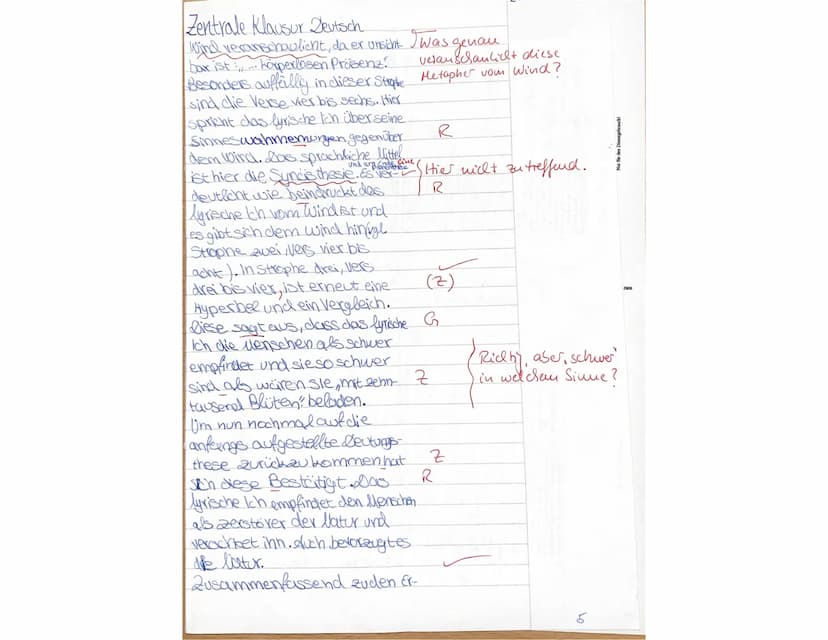 Zentrale Klausur Deutsch
Wind veranschaulicht, da er unsicht-
bar ist: „... körperlosen Präsenz".
Besonders auffällig in dieser Strophe
sind die Verse vier bis sechs. Hier
spricht das lyrische Ich über seine
Sinneswahrnemungen gegenüber
dem Wind. Das sprachliche Mittel
und am Ende eine
ist hier die Syncisthesie. Es ver-
deutlicht wie beindruckt das
lyrische Ich vom Wind ist und
es gibt sich dem Wind hin (vgl.
Strophe zwei, Vers vier bis
acht). In Strophe drei, Vers
drei bis vier, ist erneut eine
Hyperbel und ein Vergleich.
Diese sagt aus, dass das lyrische
Ich die Menschen als schwer
empfindet und sie so schwer
sind als wären sie „mit zehn-
tausend Blüten" beladen.
Um nun nochmal auf die
anfangs aufgestellte Deutungs-
these zurückzukommen hat
sich diese Bestätigt. Das
lyrische Ich empfindet den Menschen
als zerstörer der Natur und
verachtet ihn. Auch bevorzugt es
die Natur.
Zusammenfassend zu den Er-
Was genau
veranschaulicht diese
Metapher vom Wind?
R
Hier nicht zutreffend.
R
(Z)
G
Richtig, aber „schwer"
in welchem Sinne?
Z
Z
R
5